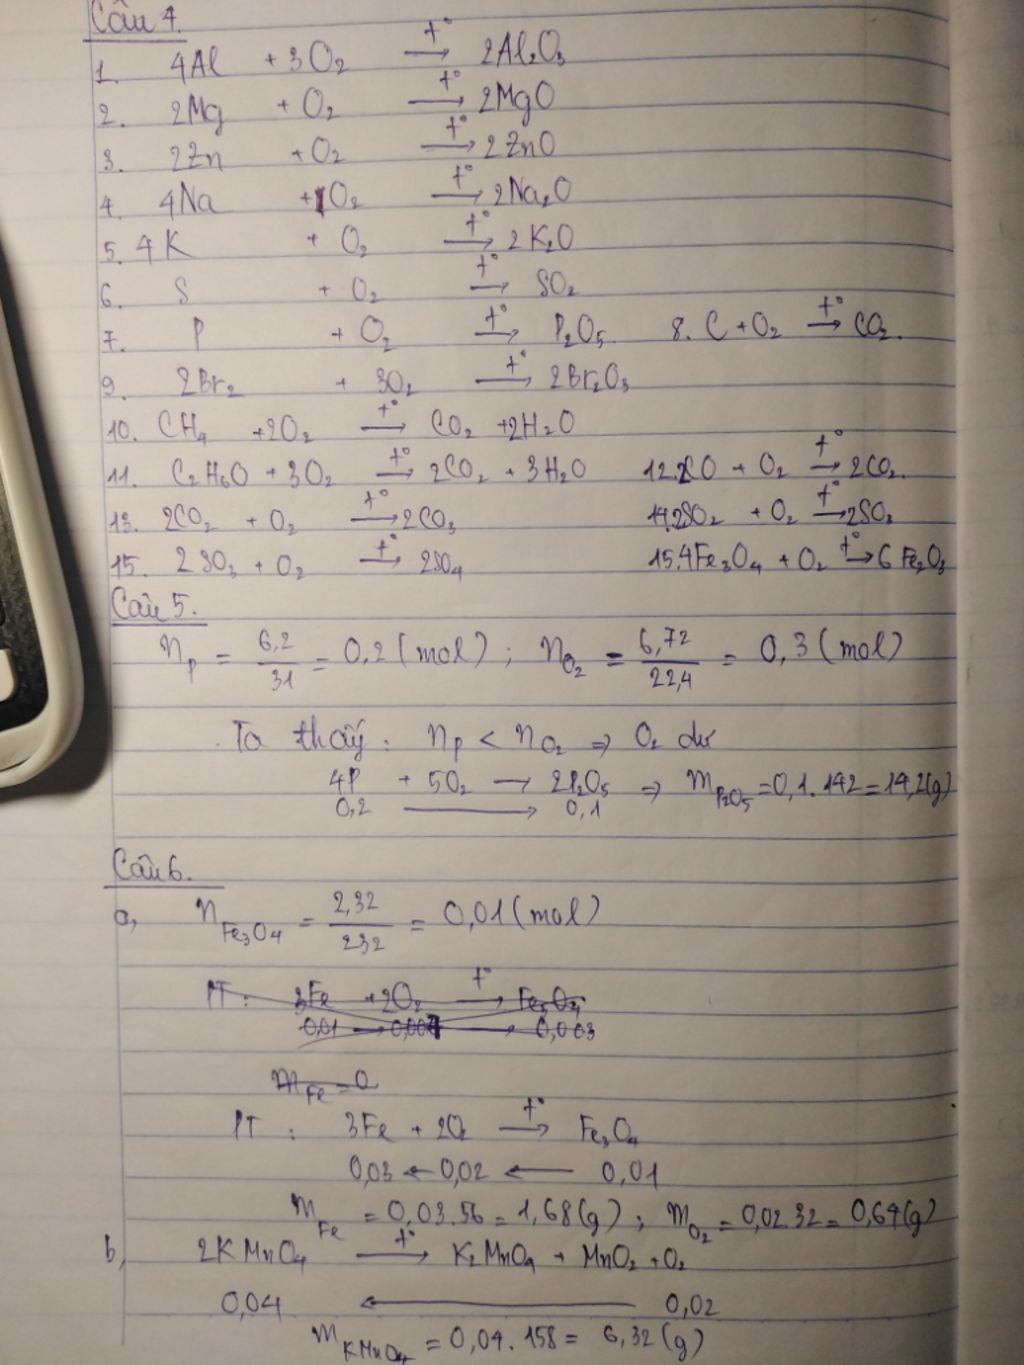 Câu 4.
1. 4Al + 3O₂ —t°→ 2Al₂O₃
2. 2Mg + O₂ —t°→ 2MgO
3. 2Zn + O₂ —t°→ 2ZnO
4. 4Na + 1O₂ —t°→ 2Na₂O
5. 4K + O₂ —t°→ 2K₂O
6. S + O₂ —t°→ SO₂
7. P + O₂ —t°→ P₂O₅. 8. C + O₂ —t°→ CO₂.
9. 2Br₂ + 3O₂ —t°→ 2Br₂O₃
10. CH₄ + 2O₂ —t°→ CO₂ + 2H₂O
11. C₂H₆O + 3O₂ —t°→ 2CO₂ + 3H₂O 12. 2CO + O₂ —t°→ 2CO₂.
13. 2CO₂ + O₂ —t°→ 2CO₃ 14. 2SO₂ + O₂ —t°→ 2SO₃
15. 2SO₃ + O₂ —t°→ 2SO₄ 15. 4Fe₃O₄ + O₂ —t°→ 6Fe₂O₃
Câu 5.
n_P = 6,2/31 = 0,2 (mol) ; n_O₂ = 6,72/22,4 = 0,3 (mol)
Ta thấy : n_P < n_O₂ ⇒ O₂ dư
4P + 5O₂ → 2P₂O₅ ⇒ m_P₂O₅ = 0,1 . 142 = 14,2 (g)
0,2 → 0,1
Câu 6.
a, n_Fe₃O₄ = 2,32/232 = 0,01 (mol)
PT : 3Fe + 2O₂ —t°→ Fe₃O₄
0,01 → 0,007 → 0,003
m_Fe = 0
PT : 3Fe + 2O₂ —t°→ Fe₃O₄
0,03 ← 0,02 ← 0,01
m_Fe = 0,03.56 = 1,68 (g) ; m_O₂ = 0,02.32 = 0,64 (g)
b, 2KMnO₄ —t°→ K₂MnO₄ + MnO₂ + O₂
0,04 ← 0,02
m_KMnO₄ = 0,04 . 158 = 6,32 (g)